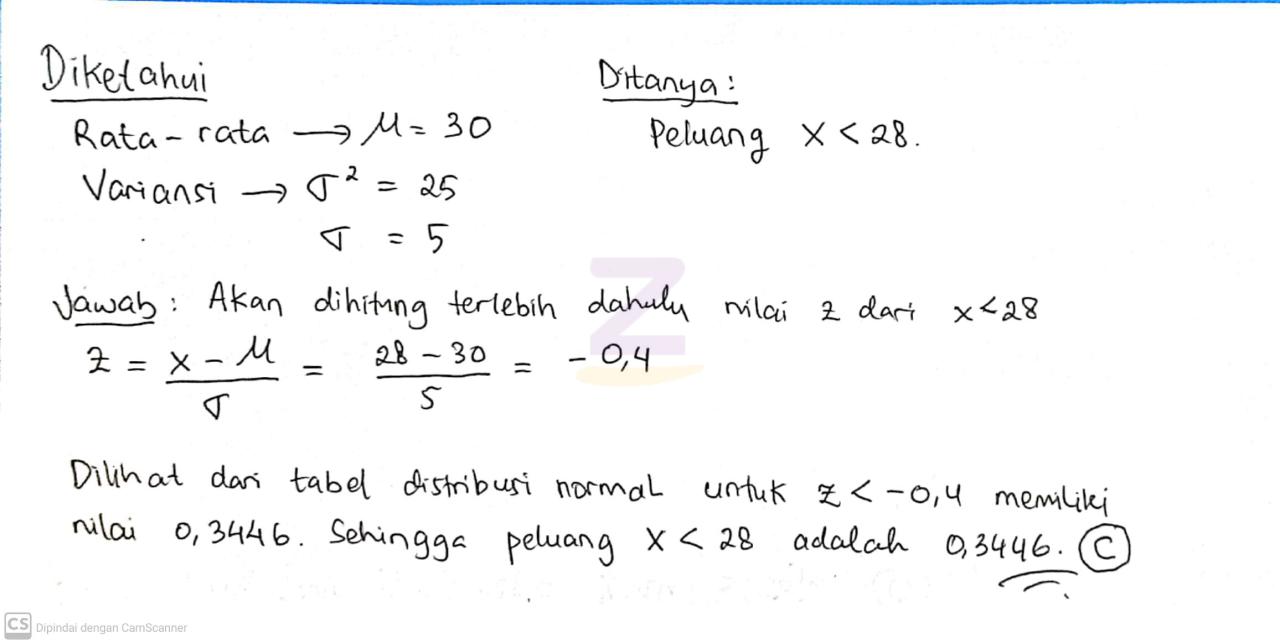 Diketahui
Rata-rata → μ = 30
Variansi → σ² = 25
σ = 5
Ditanya:
Peluang X < 28.
Jawab: Akan dihitung terlebih dahulu nilai z dari x<28
z = x - μ / σ = 28 - 30 / 5 = -0,4
Dilihat dari tabel distribusi normal untuk z < -0,4 memiliki
nilai 0,3446. Sehingga peluang X < 28 adalah 0,3446. C
Z
CS Dipindai dengan CamScanner